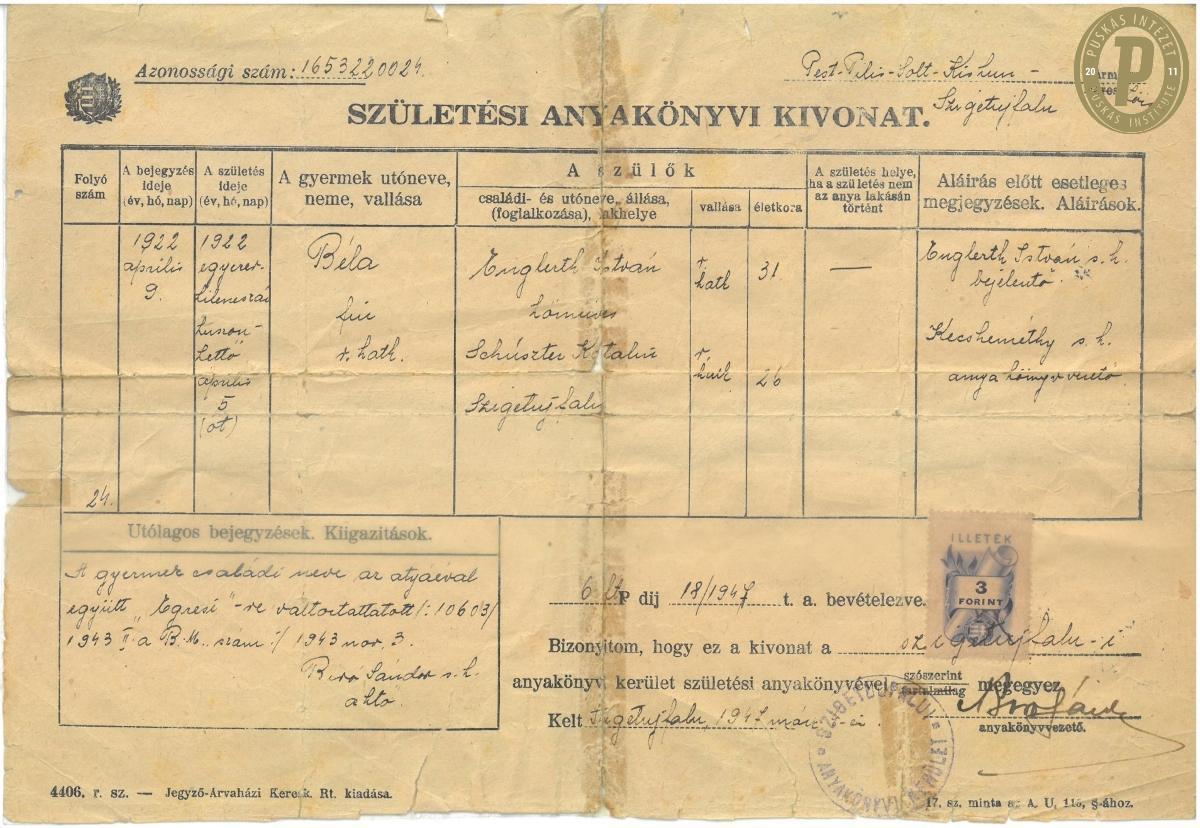 PUSKÁS INTÉZET
P
20 11
PUSKÁS INSTITUTE
Azonossági szám: 1653220024.
Pest-Pilis-Solt-Kiskun
Szigetujfalu
SZÜLETÉSI ANYAKÖNYVI KIVONAT.
Folyó szám
A bejegyzés ideje (év, hó, nap)
A születés ideje (év, hó, nap)
A gyermek utóneve, neme, vallása
A szülők
családi- és utóneve, állása, (foglalkozása), lakhelye
vallása
életkora
A születés helye, ha a születés nem az anya lakásán történt
Aláirás előtt esetleges megjegyzések. Aláírások.
24.
1922
április
9.
1922
egyezer-
kilencszáz
huszon-
kettő
április
5
(öt)
Béla
fiú
r. kath.
Englerth István
kőműves
Schúszter Katalin
Szigetujfalu
r.
kath
31
r.
kath
26
—
Englerth István s. k.
bejelentő
Kecskeméthy s. k.
anyakönyvvezető
Utólagos bejegyzések. Kiigazitások.
A gyermek családi neve az atyáéval
együtt „Egresi"-re változtattatott /: 10603/
1943 II. a B.M. szám :/ 1943 nov. 3.
Biró Sándor s. k.
ILLETÉK
3
FORINT
6 ft P dij 18/1947 t. a. bevételezve.
Bizonyitom, hogy ez a kivonat a szigetujfalu-i
anyakönyvi kerület születési anyakönyvével szószerint tartalmilag megegyez
Kelt Szigetujfalu, 1947
anyakönyvvezető.
SZIGETUJFALUI ANYAKÖNYVI KERÜLET
4406. r. sz. — Jegyző-Árvaházi Keresk. Rt. kiadása.
17. sz. minta az A. U. 115. §-ához.